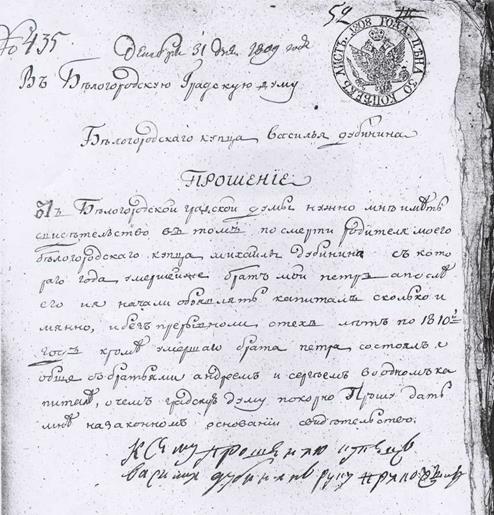 № 435
52
Декабря 31 дня 1809 года
ЛИСТЪ 1808 ГОДА ЦѢНА КОПѢЕКЪ
Въ Бѣлогородскую Градскую думу
Бѣлогородскаго купца Василья дубинина
ПРОШЕНІЕ
Бѣлогородской градской думы нужно мнѣ имѣть
свидѣтельство въ томъ по смерти родителя моего
бѣлогородскаго купца михайлы дубинина съ кото
раго года умершей же братъ мой петръ а послѣ
его и я начали объявлять капиталъ сколько и
мянно, и безъ прерывно ли отехъ лѣтъ по 1810й
годъ кромѣ умершаго брата петра состоялъ я
обще съ братьями андреемъ и сергѣемъ во одномъ ка
питалѣ, о чемъ градскую думу покорно прошу дать
мнѣ на законномъ основаніи свидѣтельство.
К сему прошению купецъ
василий дубининъ руку приложилъ